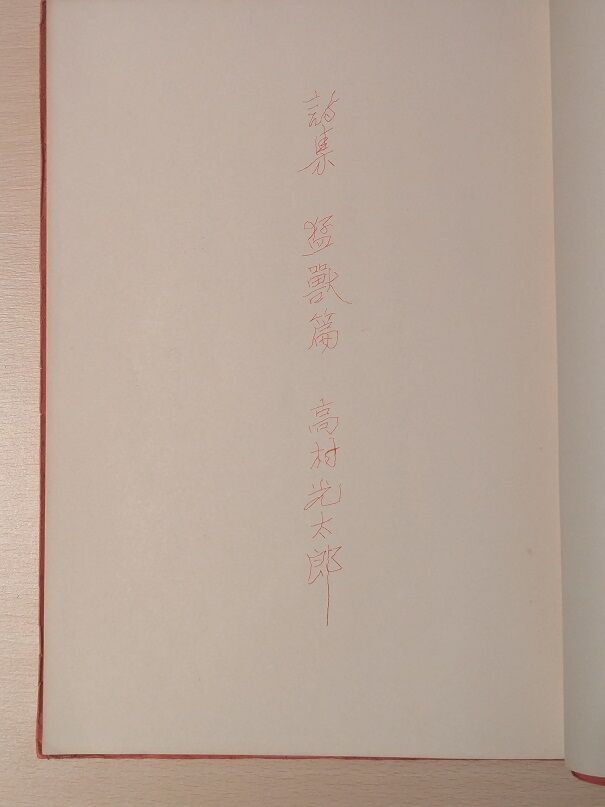 詩集　猛獸篇　高村光太郎